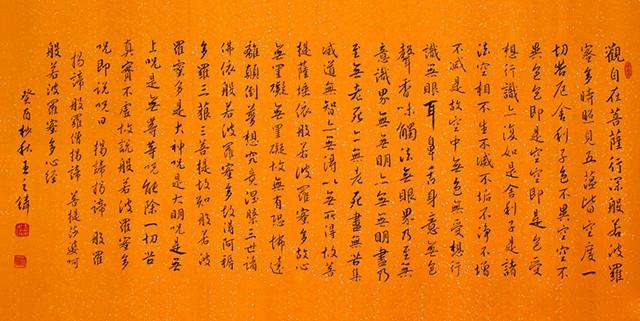 觀自在菩薩行深般若波羅
蜜多時照見五蘊皆空度一
切苦厄舍利子色不異空空不
異色色即是空空即是色受
想行識亦復如是舍利子是諸
法空相不生不滅不垢不淨不增
不減是故空中無色無受想行
識無眼耳鼻舌身意無色
聲香味觸法無眼界乃至無
意識界無無明亦無無明盡乃
至無老死亦無老死盡無苦集
滅道無智亦無得以無所得故菩
提薩埵依般若波羅蜜多故心
無罣礙無罣礙故無有恐怖遠
離顛倒夢想究竟涅槃三世諸
佛依般若波羅蜜多故得阿耨
多羅三藐三菩提故知般若波
羅蜜多是大神呪是大明呪是無
上呪是無等等呪能除一切苦
真實不虛故說般若波羅蜜多
呪即說呪曰 揭諦揭諦 般羅
揭諦般羅僧揭諦 菩提莎婆訶
般若波羅蜜多心經
癸酉杪秋王之